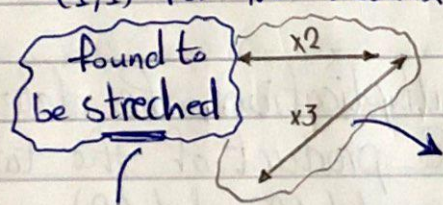 found to
be streched
x2
x3